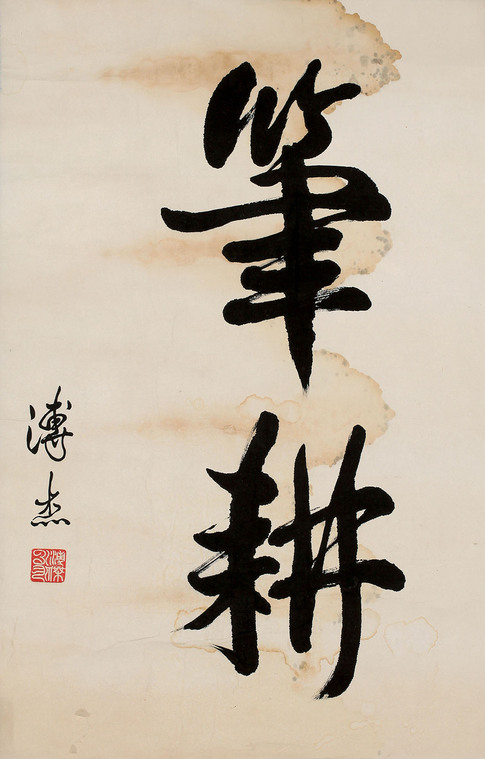 筆耕
溥杰